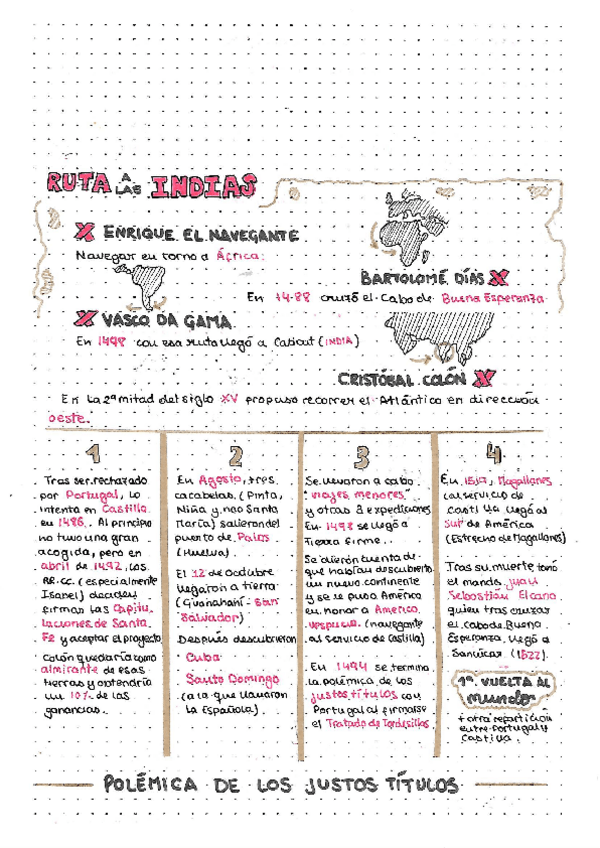 RUTA A LAS INDIAS
X ENRIQUE EL NAVEGANTE
Navegar en torno a África.
BARTOLOMÉ DÍAS X
En 1488 cruzó el Cabo de Buena Esperanza
X VASCO DA GAMA
En 1498 con esa ruta llegó a Calicut (INDIA)
CRISTÓBAL COLÓN X
En la 2ª mitad del siglo XV propuso recorrer el Atlántico en dirección
oeste.
1
Tras ser rechazado
por Portugal, lo
intenta en Castilla
en 1486. Al principio
no tuvo una gran
acogida, pero en
abril de 1492, los
RR.CC. (especialmente
Isabel) deciden
firmar las Capitu-
laciones de Santa
Fe y aceptar el proyecto
Colón quedaría como
almirante de esas
tierras y obtendría
un 10% de las
ganancias.
2
En Agosto, tres
carabelas (Pinta,
Niña y nao Santa
María) salieron del
puerto de Palos
(Huelva).
El 12 de Octubre
llegaron a tierra
(Guanahaní - San
Salvador)
Después descubrieron
Cuba
Santo Domingo
(a la que llamaron
La Española).
3
Se llevaron a cabo
"viajes menores"
y otras 3 expediciones
En 1498 se llegó a
Tierra firme.
Se dieron cuenta de
que habían descubierto
un nuevo continente
y se le puso América
en honor a Americo
Vespucio (navegante
al servicio de Castilla)
En 1494 se termina
la polémica de los
justos títulos con
Portugal al firmarse
el Tratado de Tordesillas
4
En 1519, Magallanes
al servicio de
Castilla llegó al
Sur de América
(Estrecho de Magallanes)
Tras su muerte tomó
el mando Juan
Sebastián Elcano
quien tras cruzar
el cabo de Buena
Esperanza llegó a
Sanlúcar (1522).
1ª VUELTA AL
mundo
+ otra repartición
entre Portugal y
Castilla.
POLÉMICA DE LOS JUSTOS TÍTULOS